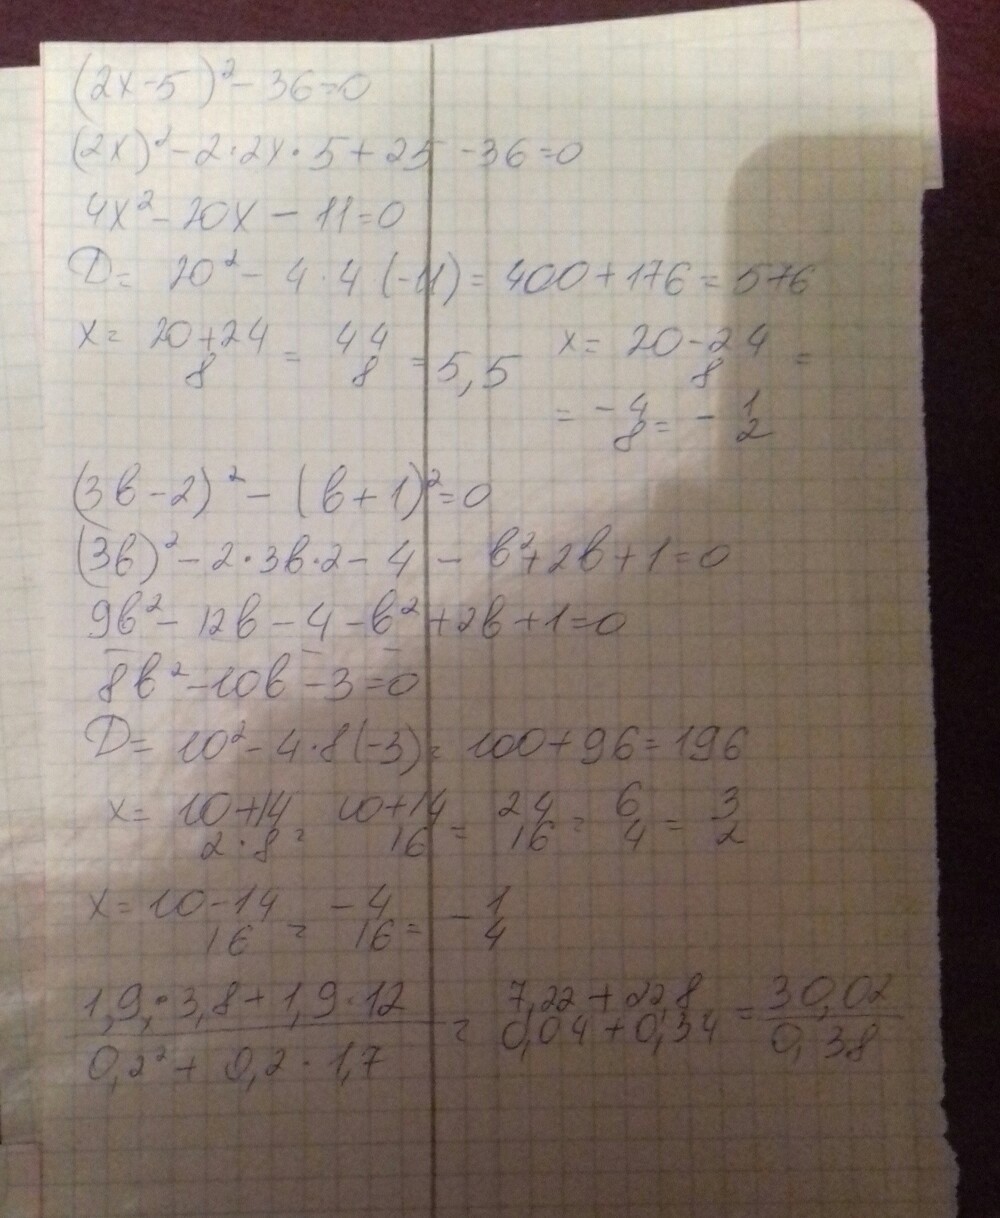 (2x-5)² - 36=0
(2x)² - 2·2x·5 + 25 - 36=0
4x² - 20x - 11=0
D= 20² - 4·4(-11) = 400+176=576
x= 20+24/8 = 44/8 = 5,5 x= 20-24/8 =
= -4/8 = -1/2
(3в-2)² - (в+1)²=0
(3в)² - 2·3в·2 - 4 - в²+2в+1=0
9в² - 12в - 4 - в² + 2в + 1=0
8в² - 10в - 3=0
D= 10² - 4·8(-3)= 100+96=196
x= 10+14/2·8 = 10+14/16 = 24/16 = 6/4 = 3/2
x= 10-14/16 = -4/16 = -1/4
1,9·3,8+1,9·12/0,2²+0,2·1,7 = 7,22+22,8/0,04+0,34 = 30,02/0,38